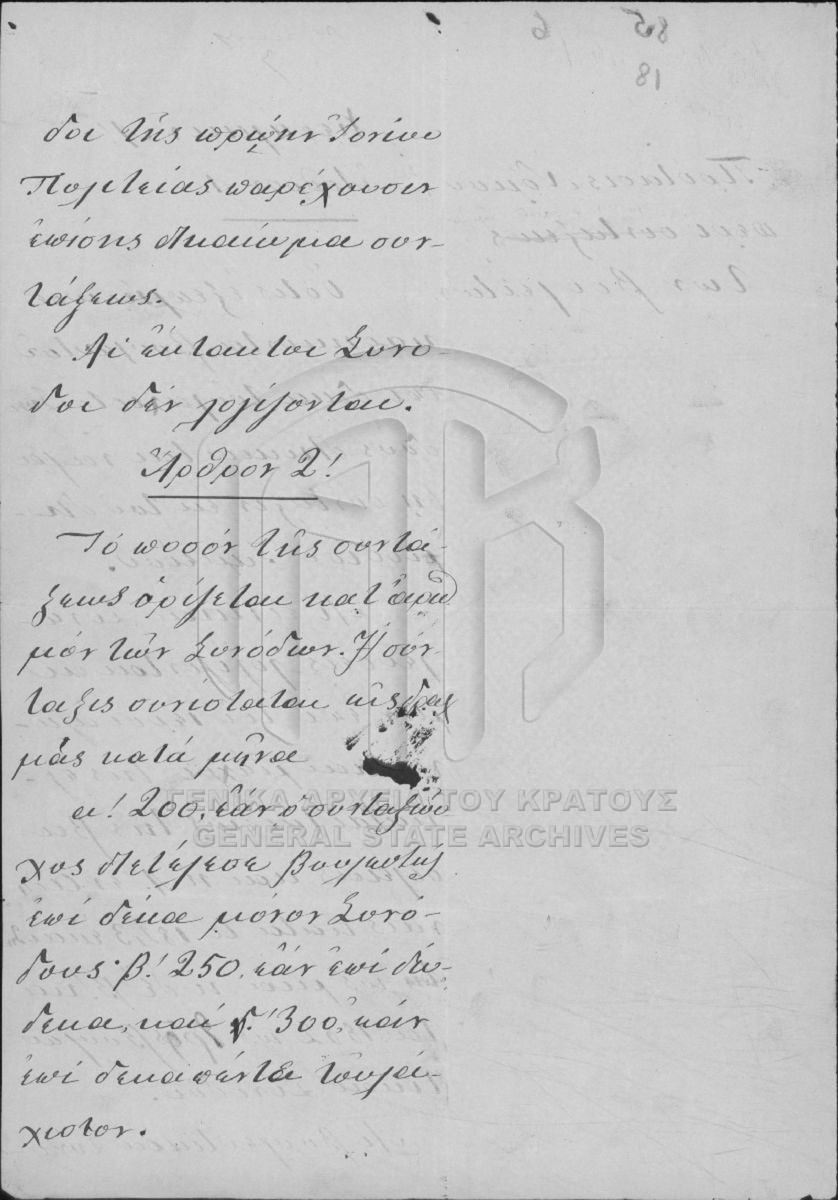 85 6
18
δοι τῆς πρῴην Ἰονίου
Πολιτείας παρέχουσιν
ἐπίσης δικαίωμα συν-
τάξεως.
Αἱ ἔκτακτοι Σύνο-
δοι δέν λογίζονται.
Ἄρθρον 2!
Τό ποσόν τῆς συντά-
ξεως ὁρίζεται κατ' ἀριθ
μόν τῶν Συνόδων. Ἡ σύν-
ταξις συνίσταται εἰς δραχ
μάς κατά μῆνα
α! 200, ἐάν ὁ συνταξιοῦ
χος διετέλεσε βουλευτής
ἐπί δέκα μόνον Συνό-
δους· β! 250, ἐάν ἐπί δώ-
δεκα, καί γ! 300, ἐάν
ἐπί δεκαπέντε τοὐλά-
χιστον.
ΓΕΝΙΚΑ ΑΡΧΕΙΑ ΤΟΥ ΚΡΑΤΟΥΣ
GENERAL STATE ARCHIVES